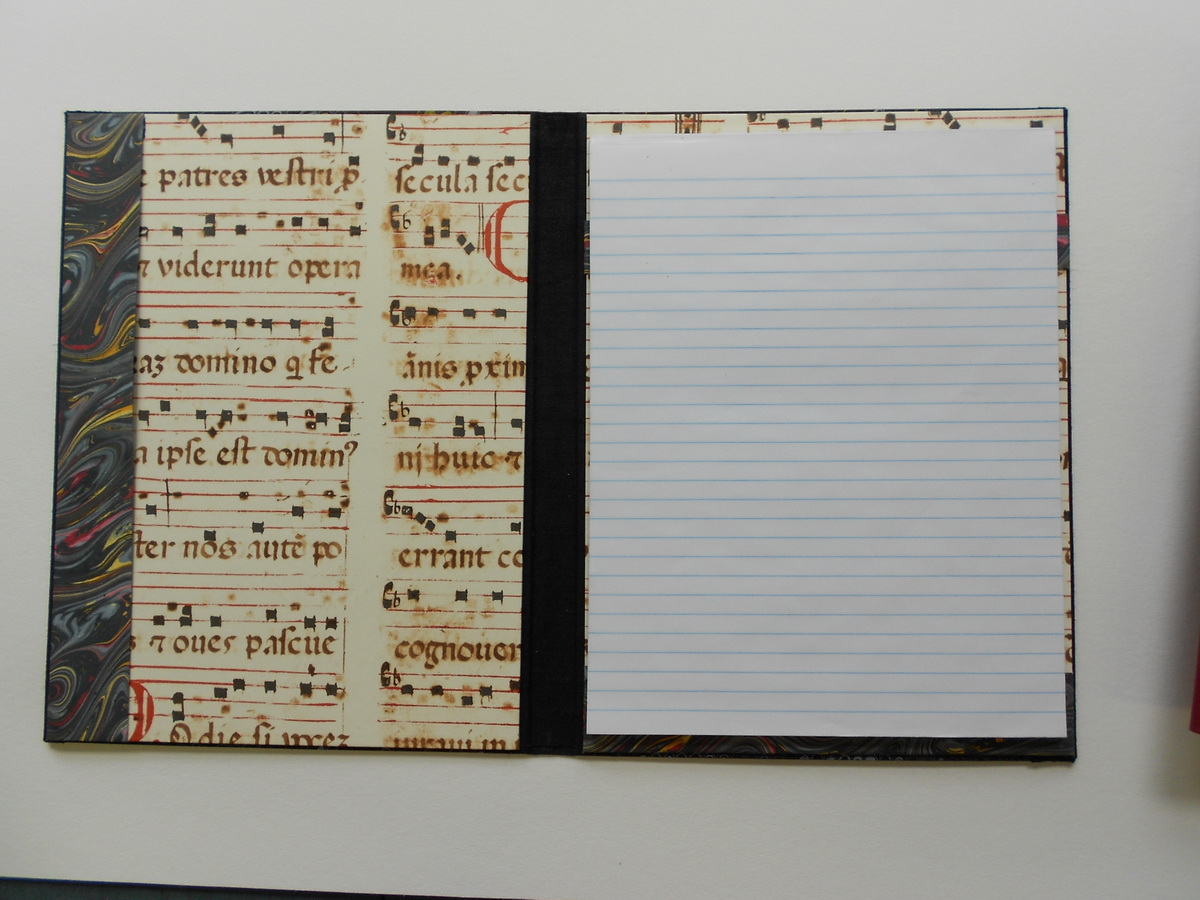 patres vestri p
viderunt opera
domino q fe
a ipse est domin
ter nos autē po
s ⁊ oues pascue
Odie si vocez
secula sec
mea.
ānis pxim
nj huic ⁊
errant co
cognouer